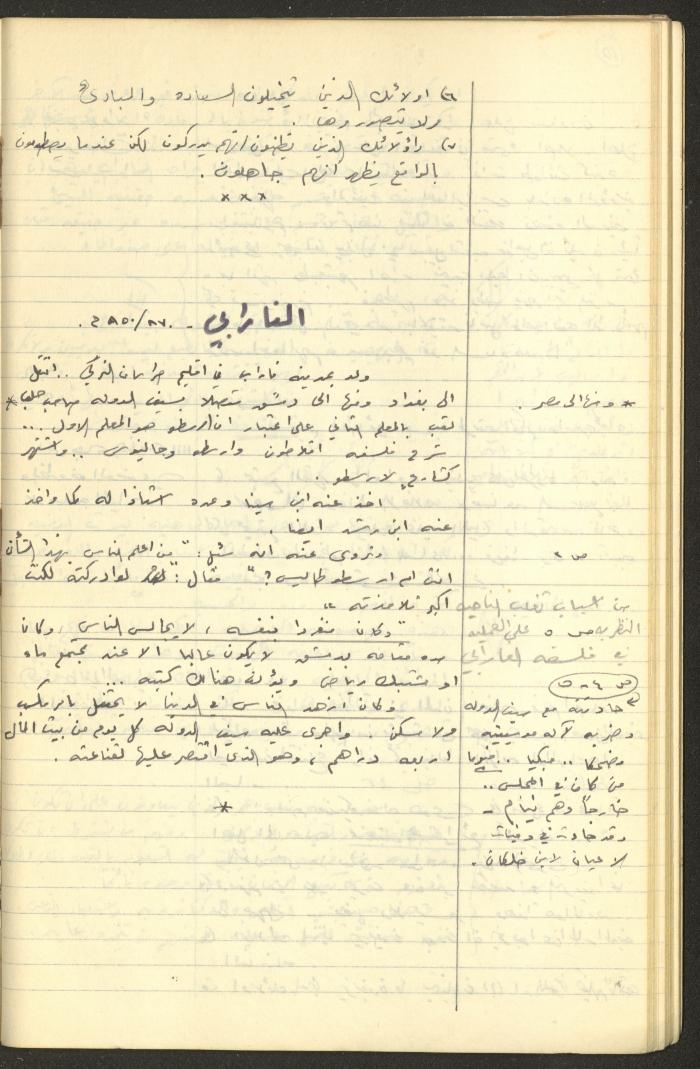 ٦) اولائك الذين يتخيلون السعاده والمبادىء
ولا يتصوروها .
٧) واولائك الذين يظنون انهم يدركون لكن عندما يصطدمون
بالواقع يظهر انهم جاهلون .
* * *
الفارابي - ٨٧٠/٩٥٠ م .
ولد بمدينه فاراب في اقليم خراسان التركي .. انتقل
الى بغداد ومنها الى دمشق متصلا بسيف الدوله صاحب حلب *
* ومنها الى مصر .
لقب بالمعلم الثاني على اعتبار ان ارسطو هو المعلم الاول ...
شرح فلسفه افلاطون وارسطو وجالينوس .. واشتهر
كشارح لارسطو .
اخذ عنه ابن سينا وعده استاذا له كما واخذ
عنه ابن رشد ايضا .
وتروى عنه انه سئل : " من اعلم الناس بهذا الشأن
انت ام ارسطوطاليس ؟ " فقال : " لو ادركته لكنت
اكبر تلامذته "
" وكان منفردا بنفسه ، لا يجالس الناس ، وكان
مده مقامه بدمشق لا يكون غالبا الا عند مجتمع ماء
او مشتبك رياض ويؤلف هناك كتبه ...
وكان ازهد الناس في الدنيا لا يحتفل بامر مكسب
ولا مسكن . واجرى عليه سيف الدوله كل يوم من بيت المال
اربعه دراهم ، وهو الذي اقتصر عليها لقناعته .
*
ص ٢
من اسباب تغلب الناحيه
النظريه ص ٥ على العمليه
في فلسفه الفارابي
ص ٤ - ٥
حادثته مع سيف الدوله
وضربه لآله موسيقيه
مضحكا .. مبكيا .. منوما
من كان في المجلس ..
خارجاً وهم نيام -
وقد جاءت في وفيات
الاعيان لابن خلكان .